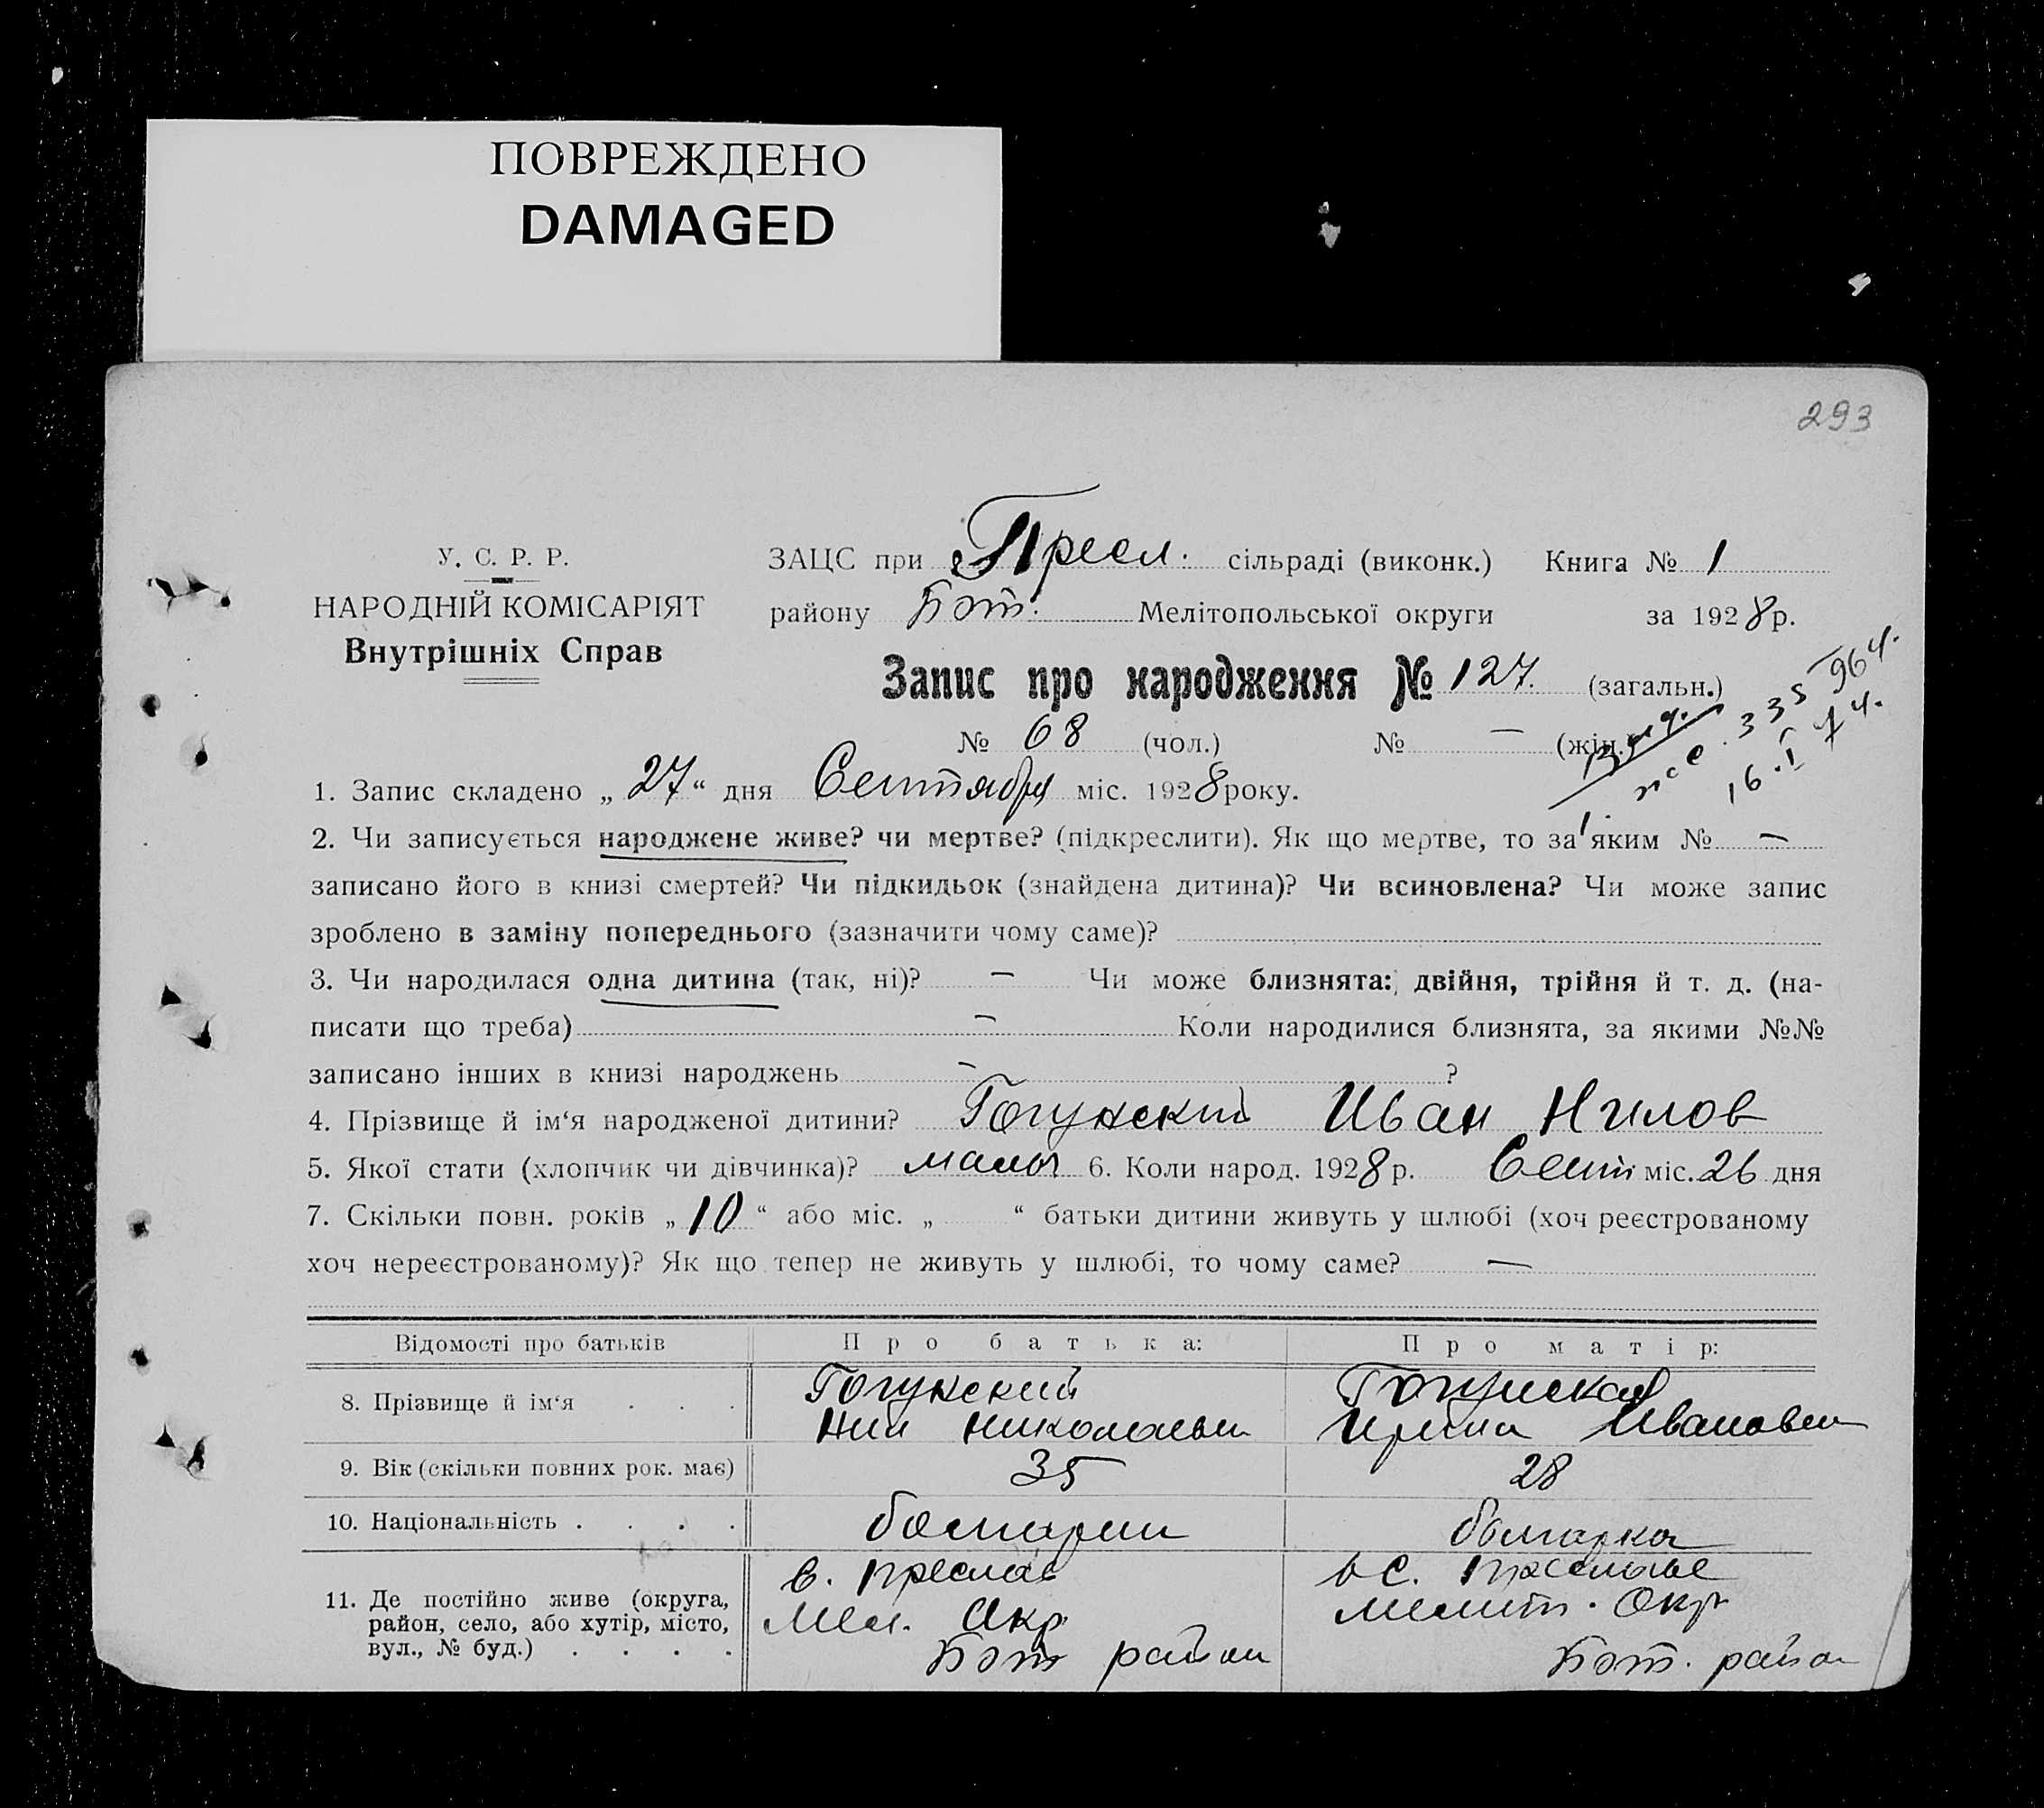 ПОВРЕЖДЕНО
DAMAGED
293
У. С. Р. Р.
НАРОДНІЙ КОМІСАРІЯТ
Внутрішніх Справ
ЗАЦС при Пресл. сільраді (виконк.) Книга № 1
району Бот. Мелітопольської округи за 1928 р.
Запис про народження № 127. (загальн.)
№ 68 (чол.) № — (жін.)
335 964.
16.I 74.
1. Запис складено „27“ дня Сентября міс. 1928 року.
2. Чи записується народжене живе? чи мертве? (підкреслити). Як що мертве, то за яким № —
записано його в книзі смертей? Чи підкидьок (знайдена дитина)? Чи всиновлена? Чи може запис
зроблено в заміну попереднього (зазначити чому саме)?
3. Чи народилася одна дитина (так, ні)? — Чи може близнята: двійня, трійня й т. д. (на-
писати що треба) — Коли народилися близнята, за якими №№
записано інших в книзі народжень — ?
4. Прізвище й ім‘я народженої дитини? Гогунский Иван Нилов
5. Якої стати (хлопчик чи дівчинка)? 6. Коли народ. 1928 р. Сент міс. 26 дня
7. Скільки повн. років „10“ або міс. „ “ батьки дитини живуть у шлюбі (хоч реєстрованому
хоч нереєстрованому)? Як що тепер не живуть у шлюбі, то чому саме? —
Відомості про батьків Про батька: Про матір:
8. Прізвище й ім‘я . . . Гогунский Гогунская
Нил Николаевич Ирина Ивановна
9. Вік (скільки повних рок. має) 35 28
10. Національність . . . . болгарин болгарка
11. Де постійно живе (округа, район, село, або хутір, місто, вул., № буд.) . . . .
в. Преслав в с. Преславе
Мел. Окр. Мелит. Окр
Бот район Бот. район